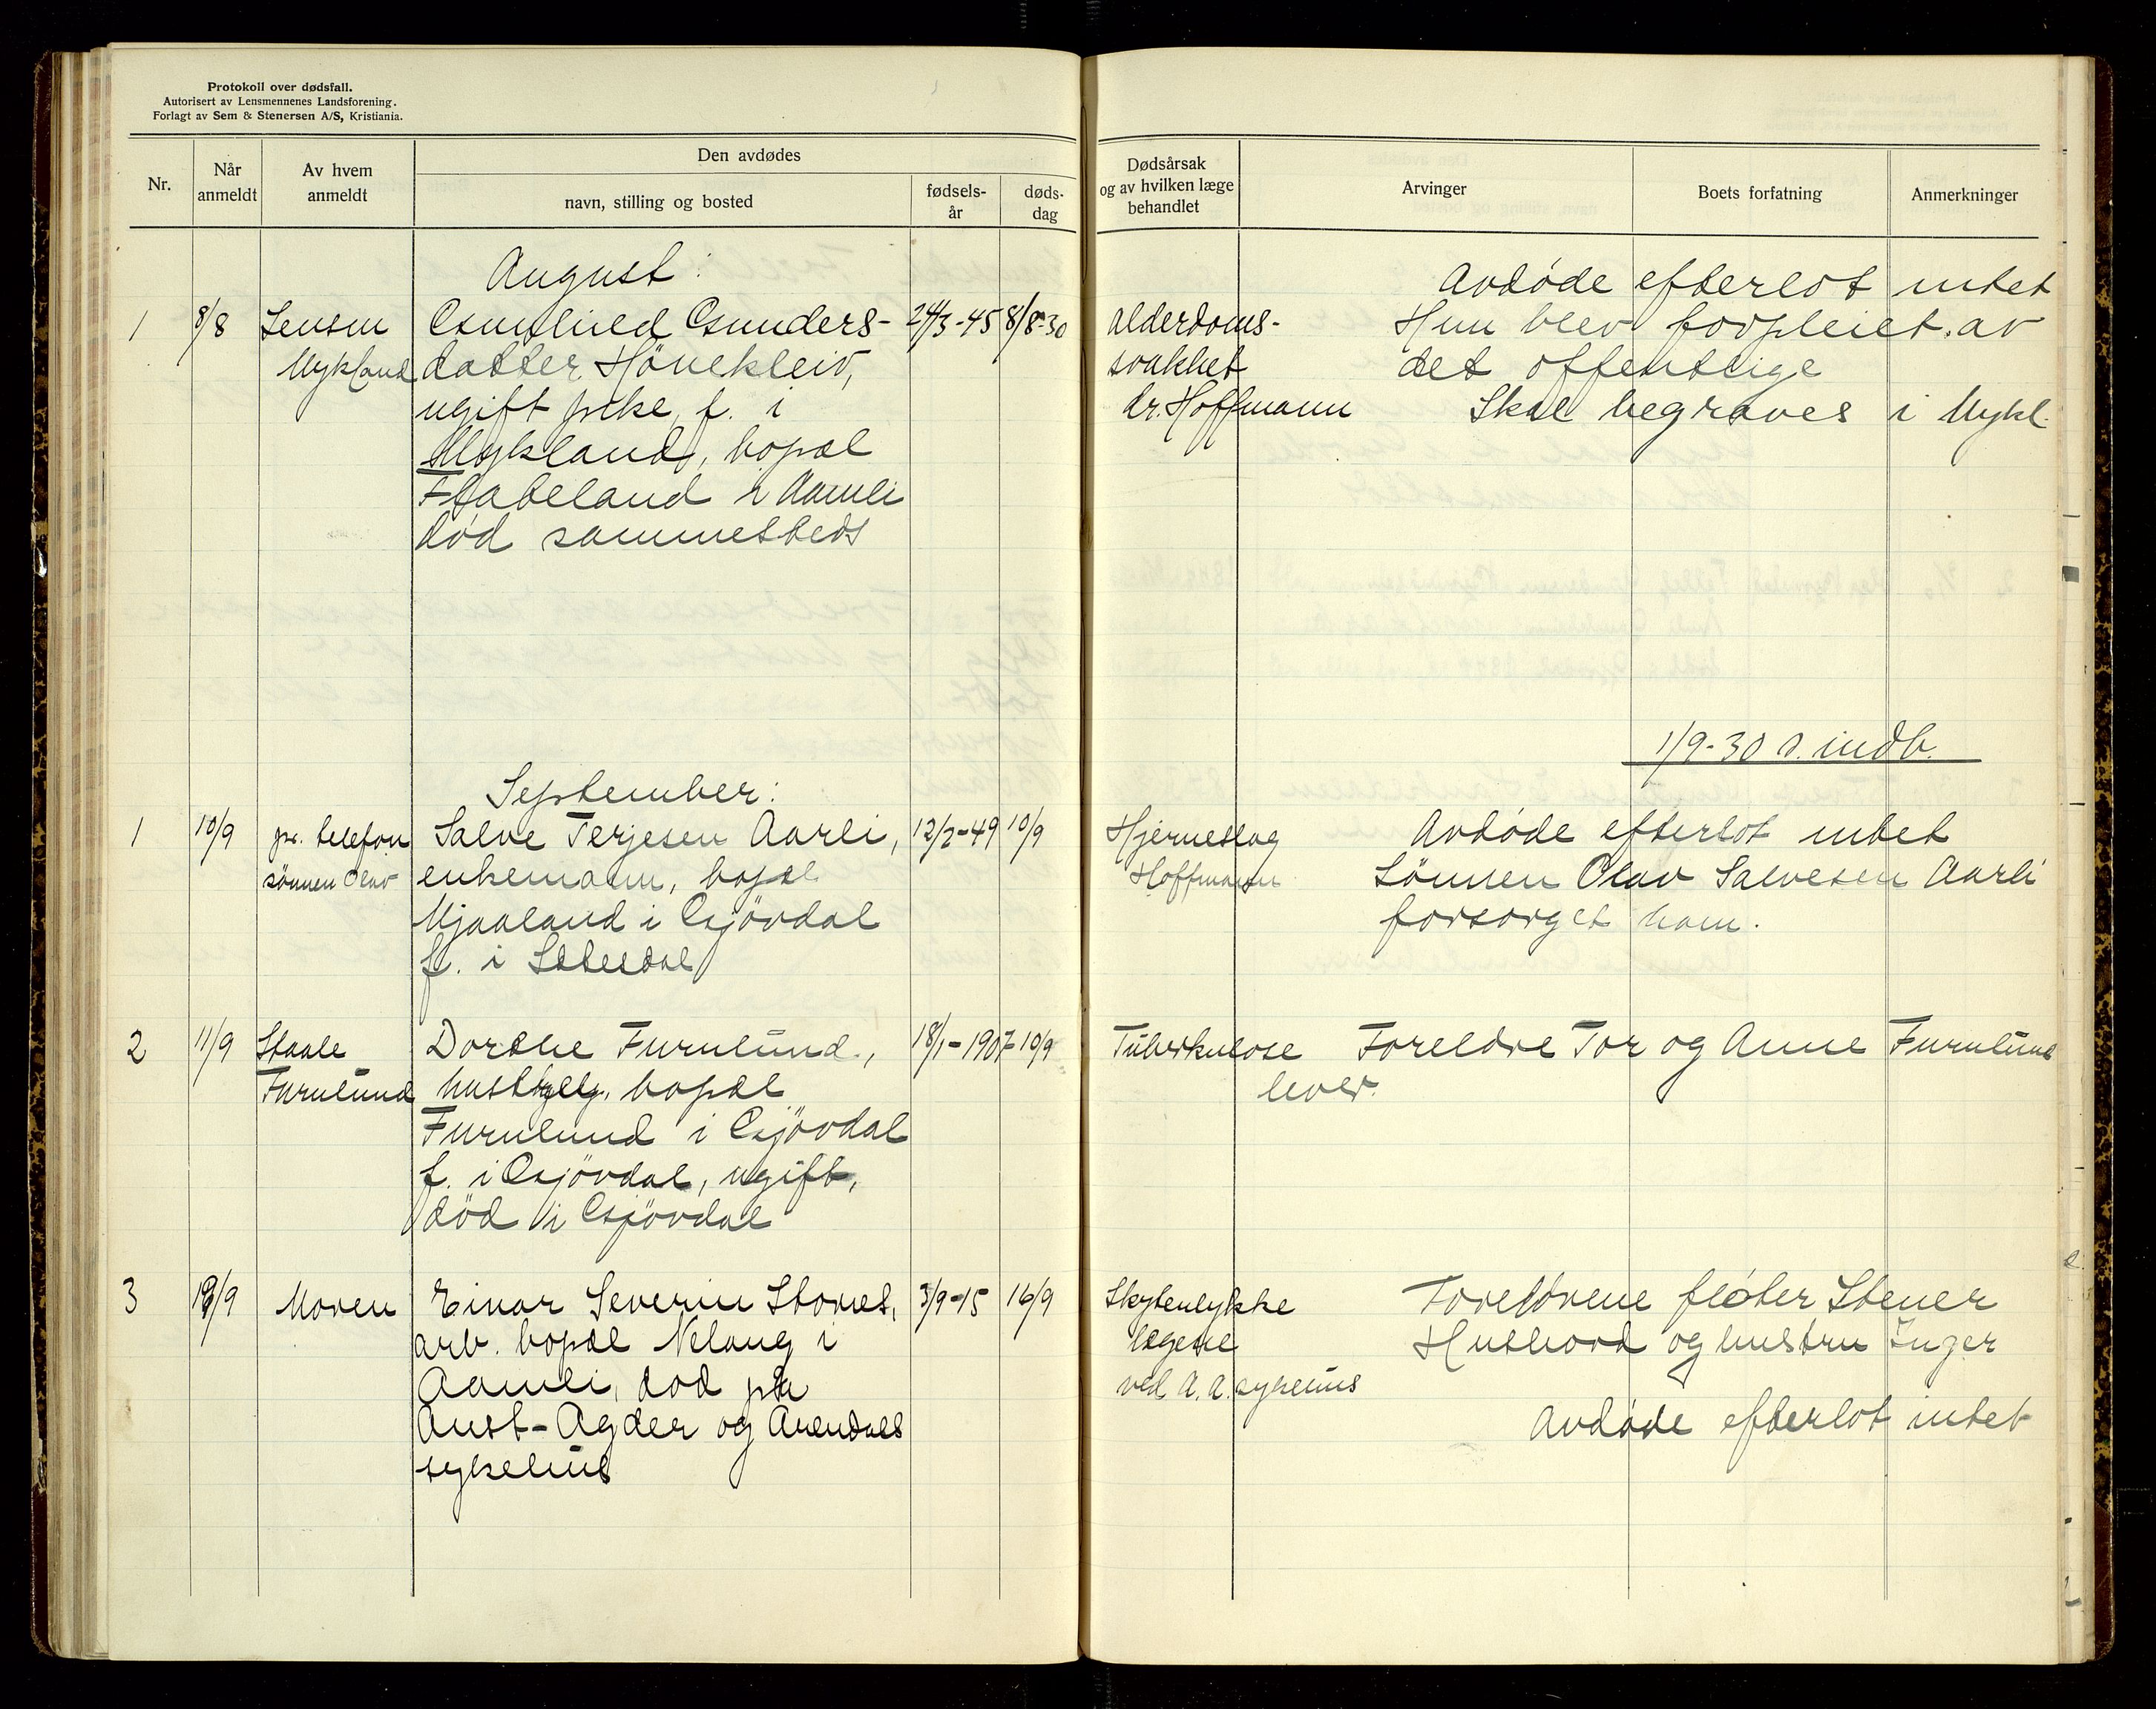 Protokoll over dødsfall.
Autorisert av Lensmennenes Landsforening.
Forlagt av Sem & Stenersen A/S, Kristiania.
Nr.
Når anmeldt
Av hvem anmeldt
Den avdødes
navn, stilling og bosted
fødsels-år
døds-dag
Dødsårsak og av hvilken læge behandlet
Arvinger
Boets forfatning
Anmerkninger
August:
1 8/8 Lensm Gunhild Gunders- 24/3-45 8/8-30
Mykland datter Hönekleiv,
ugift pike, f. i
Mykland, bopæl
Stabeland i Aamli
död sammesteds
alderdoms-
svakhet
dr. Hoffmann
Avdøde efterlot intet
Hun blev forpleiet av
det offentlige
Skal begraves i Mykl.
1/9-30 s. indb.
September:
1 10/9 pr. telefon Salve Terjesen Aarli, 12/2-49 10/9
sönnen Olav enkemann, bopæl
Mjaaland i Gjövdal
f. i Setesdal
Hjerneslag
Hoffmann
Avdøde efterlot intet
Sönnen Olav Salvesen Aarli
forsorget ham.
2 11/9 Staale Dorthe Furulund, 18/1-1907 10/9
Furulund bopæl
Furulund i Gjövdal
f. i Gjövdal, ugift,
död i Gjövdal
Tuberkulose
Foreldre Tor og Anne Furulund
lever.
3 19/9 Moren Einar Severin 3/9-15 16/9
arb. bopæl Nelaug i
Aamli, död på
Aust-Agder og Arendals
sykehus
lægene
ved A. A. sykehus
Foreldrene fløter Stener
og hustru Inger
Avdøde efterlot intet